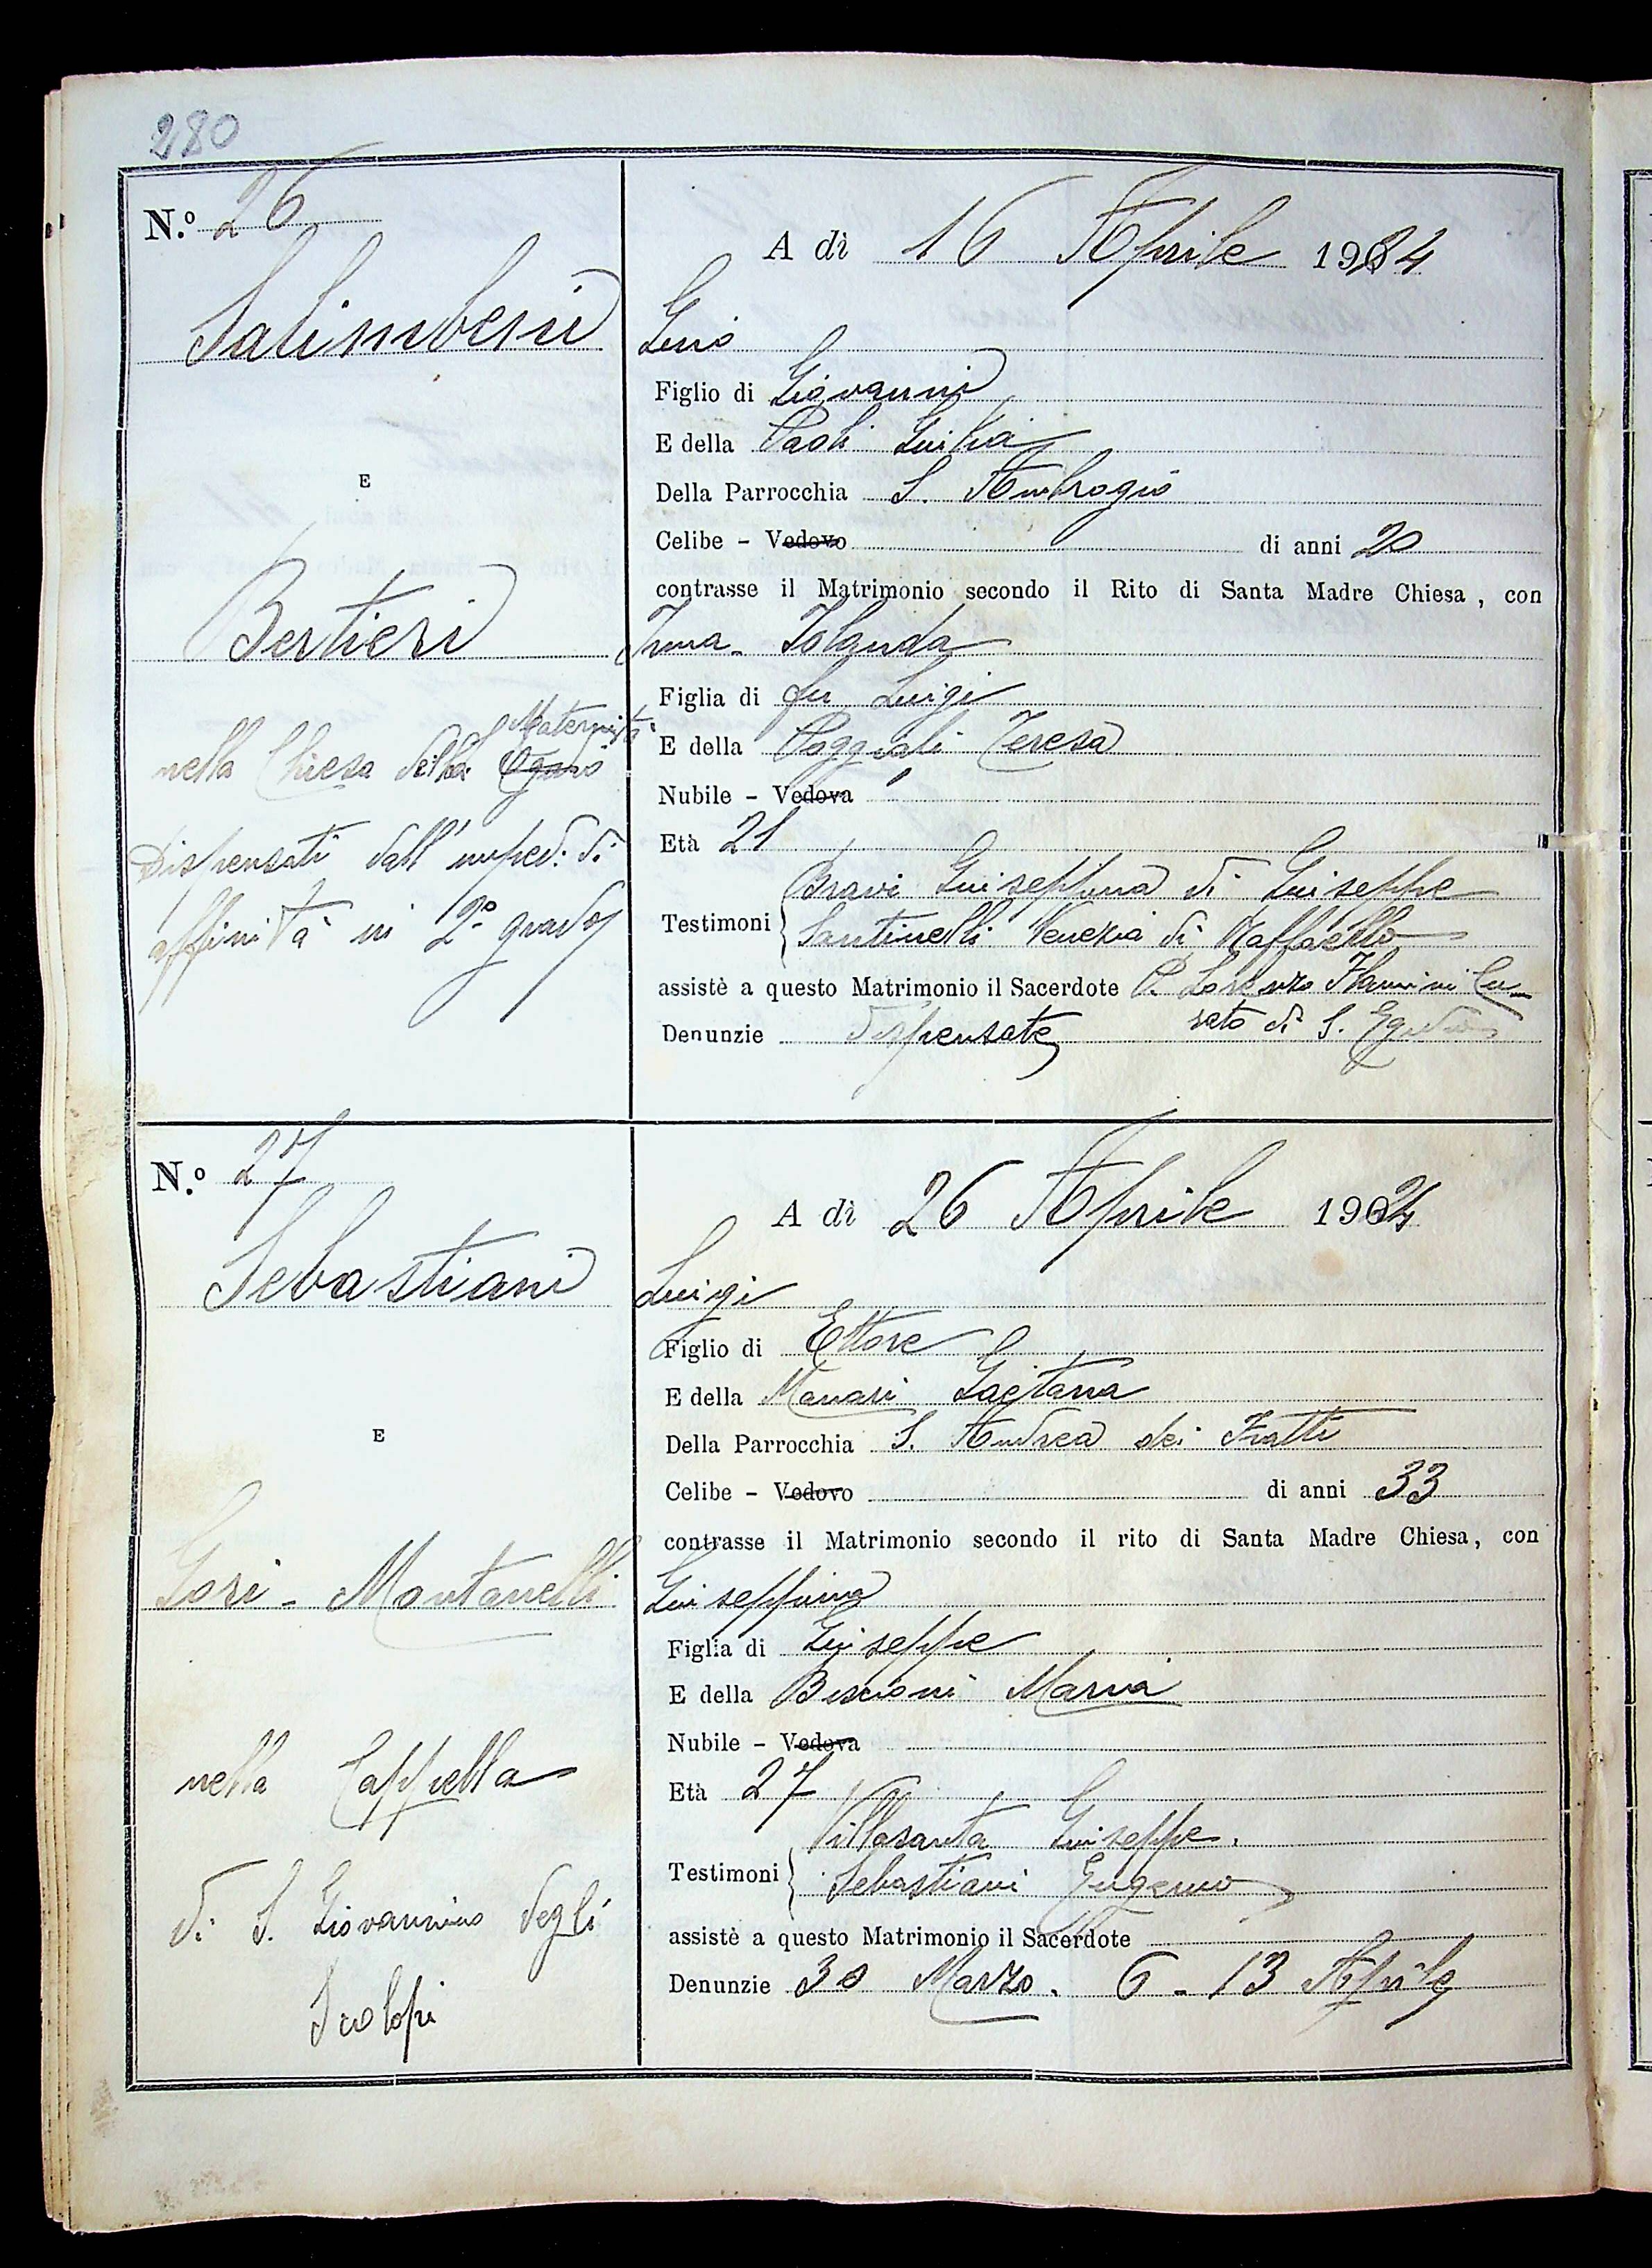 280
N.º 26
A dì 16 Aprile 1924
Salimbeni
Gino
Figlio di Giovanni
E della Paoli Giulia
E
Della Parrocchia S. Ambrogio
Celibe - Vedovo di anni 20
contrasse il Matrimonio secondo il Rito di Santa Madre Chiesa, con
Bertieri
Irma - Iolanda
Figlia di fu Luigi
Maternità
nella Chiesa della
E della Poggiali Teresa
Nubile - Vedova
Dispensati dall'imped. di
Età 21
affinità in 2º grado
Bravi Giuseppina di Giuseppe
Testimoni
Santinelli Venezia di Raffaello
assistè a questo Matrimonio il Sacerdote P. Lorenzo Flamini Cu-
rato di S. Egidio
Denunzie Dispensate
N.º 27
A dì 26 Aprile 1924
Sebastiani
Luigi
Figlio di Ettore
E della Manari Gaetana
E
Della Parrocchia S. Andrea dei Fratti
Celibe - Vedovo di anni 33
contrasse il Matrimonio secondo il rito di Santa Madre Chiesa, con
Gori - Montanelli
Giuseppina
Figlia di Giuseppe
E della Biscioni Maria
nella Cappella
Nubile - Vedova
Età 27
di S. Giovannino degli
Scolopi
Villasanta Giuseppe.
Testimoni
Sebastiani Eugenio
assistè a questo Matrimonio il Sacerdote
Denunzie 30 Marzo. 6 - 13 Aprile